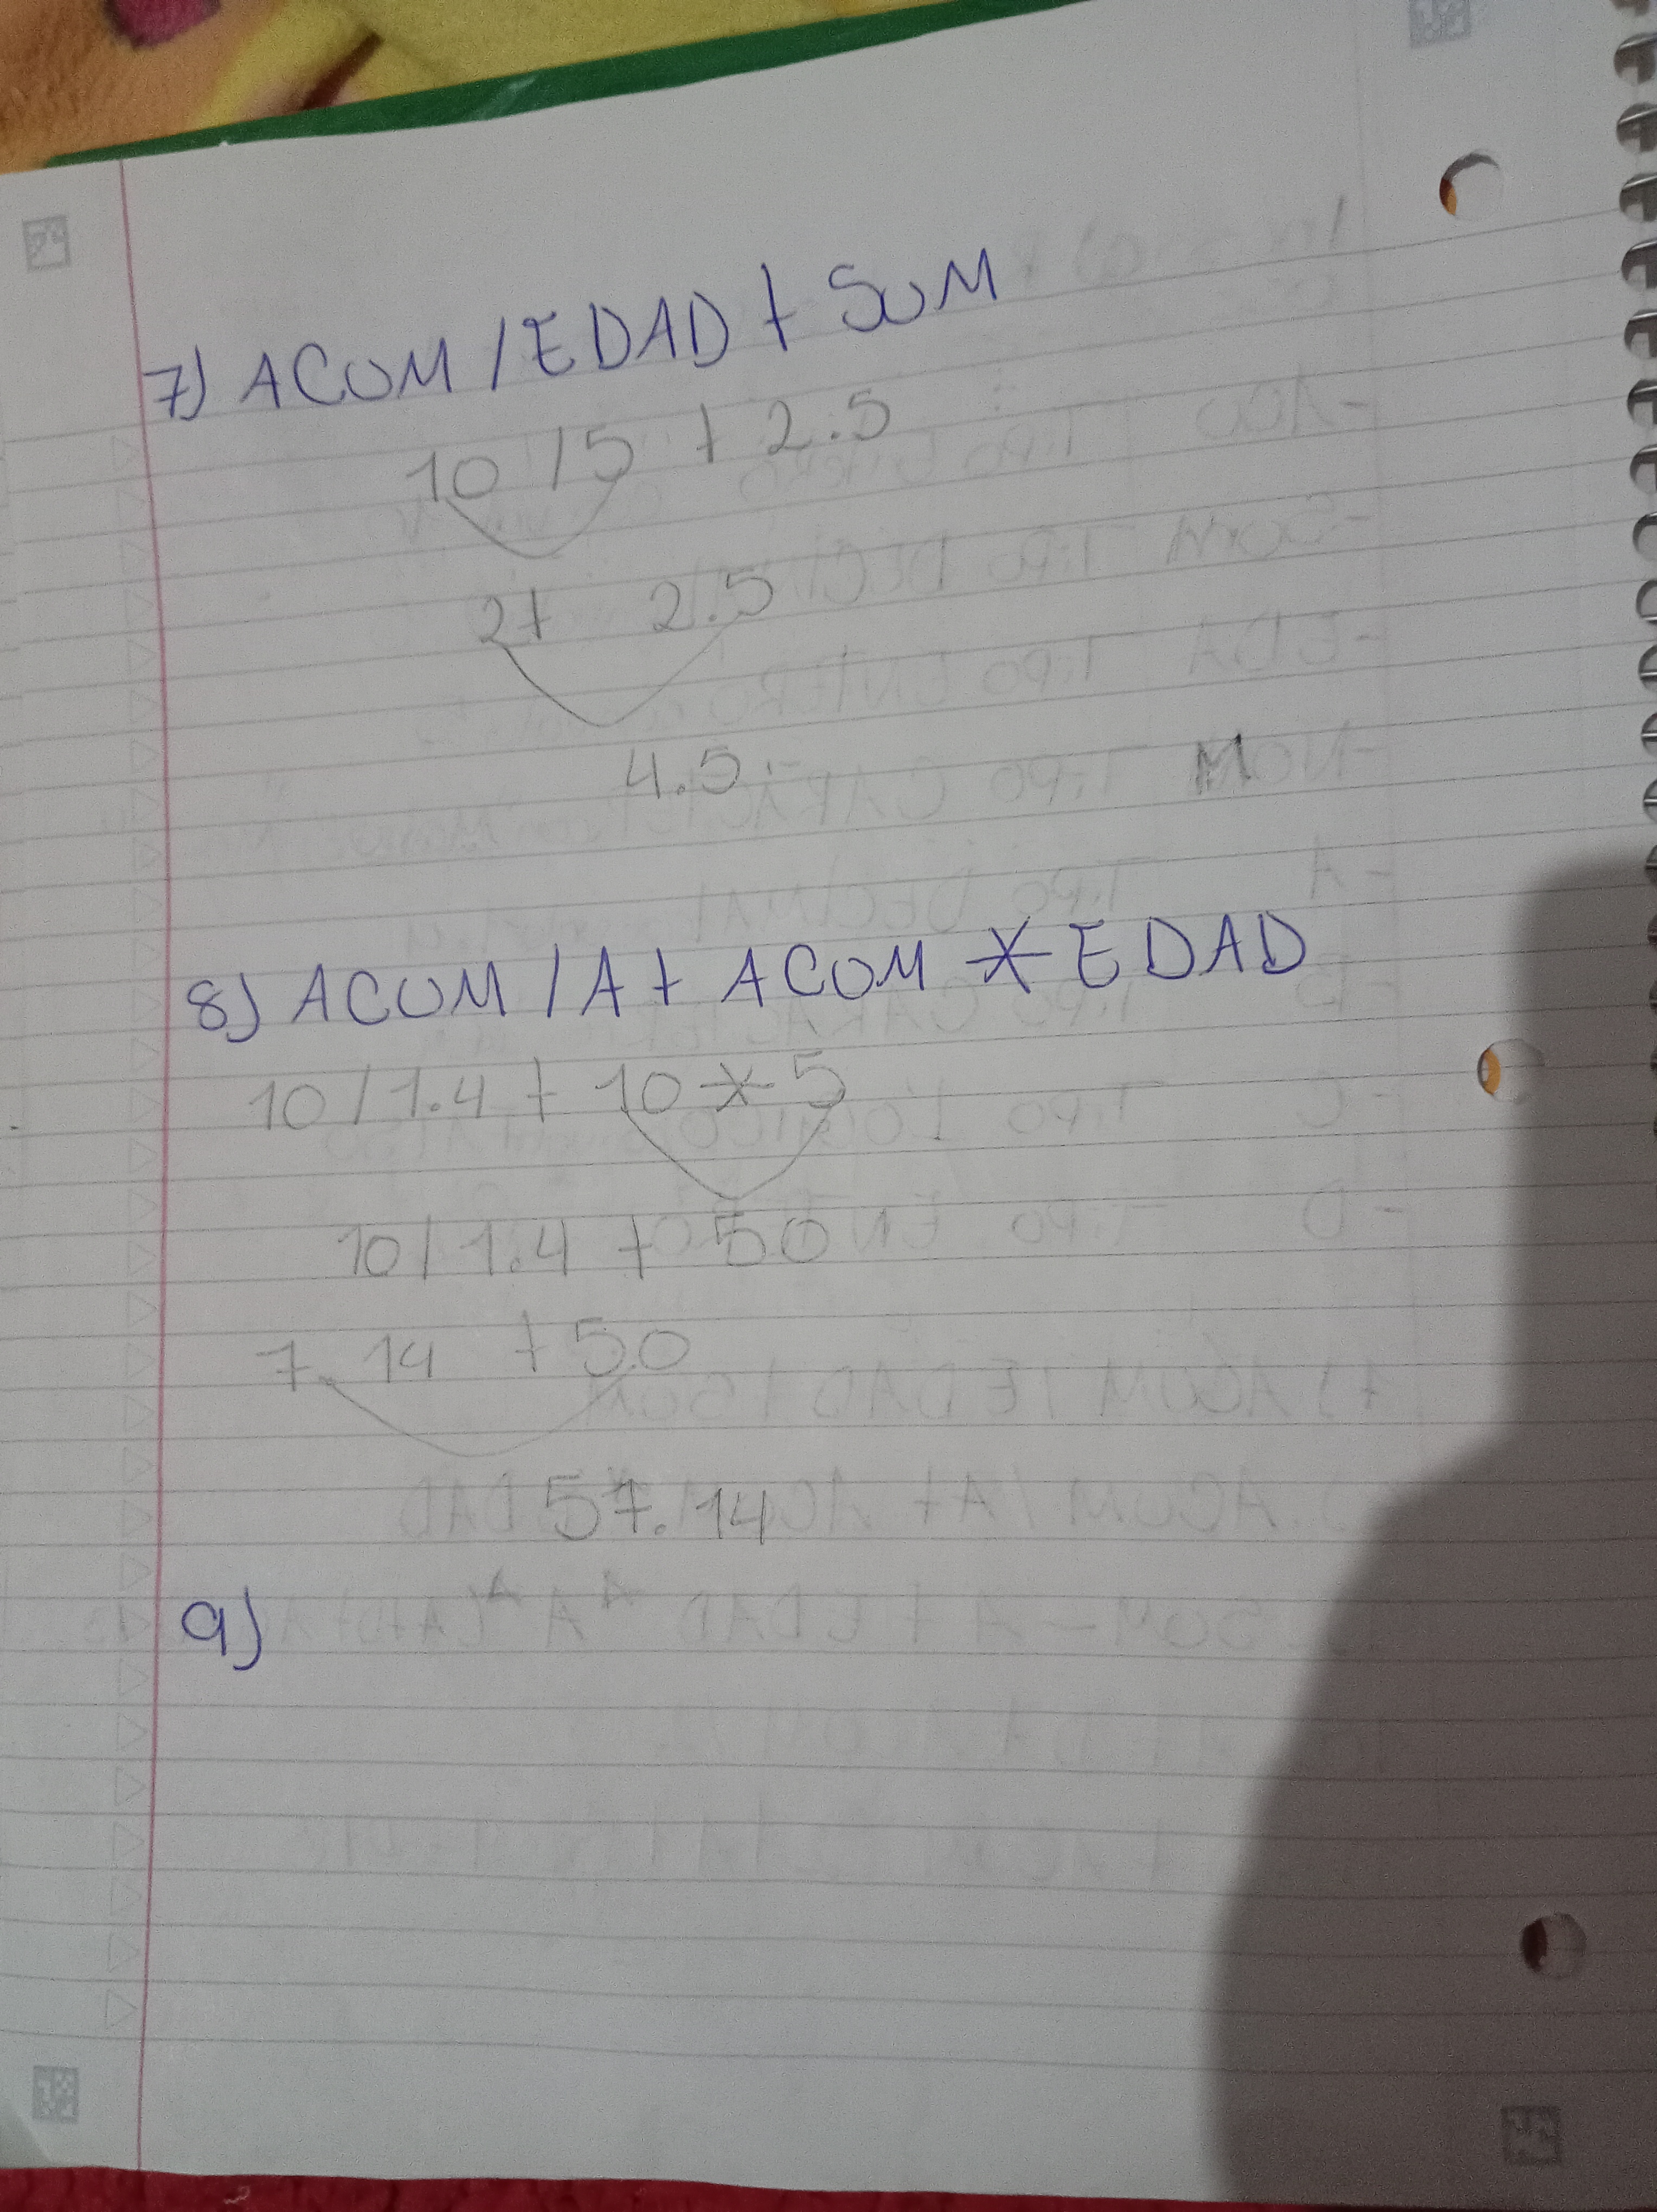 7) ACUM / EDAD + SUM
10 / 5 + 2.5
2 + 2.5
4.5
8) ACUM / A + ACOM * EDAD
10 / 1.4 + 10 * 5
10 / 1.4 + 50
7.14 + 50
57.14
9)